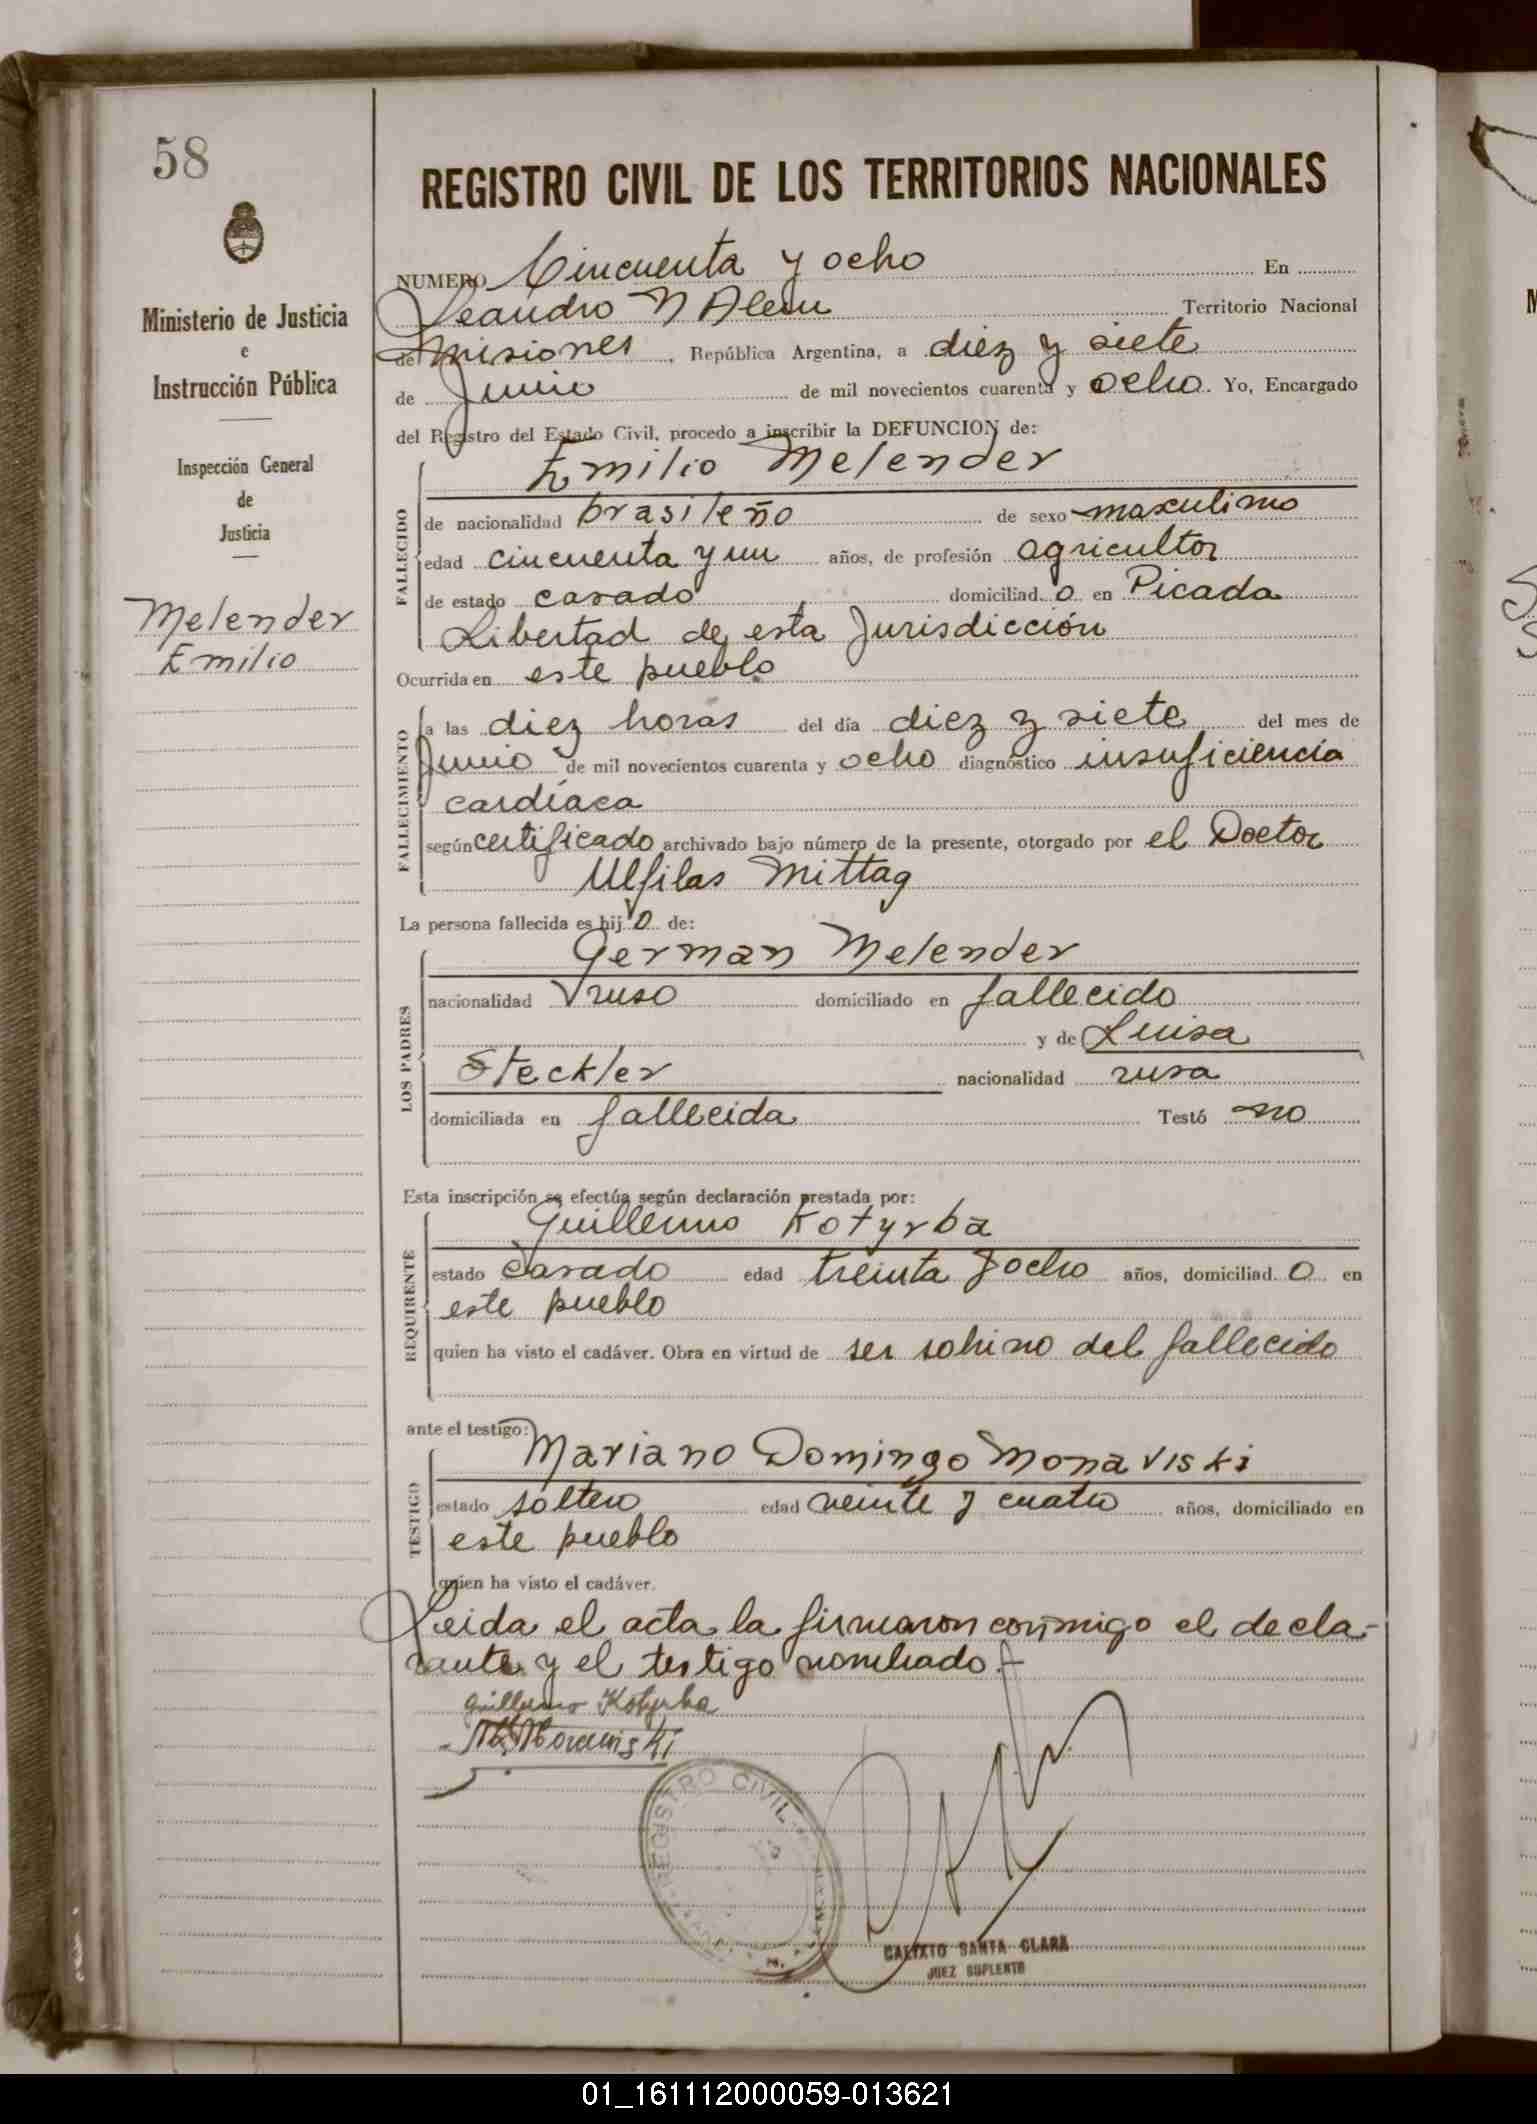 58
Ministerio de Justicia
e
Instrucción Pública
Inspección General
de
Justicia
Melender
Emilio
REGISTRO CIVIL DE LOS TERRITORIOS NACIONALES
NUMERO Cincuenta y ocho En
Leandro N Alem Territorio Nacional
de Misiones, República Argentina, a diez y siete
de Junio de mil novecientos cuarenta y ocho. Yo, Encargado
del Registro del Estado Civil, procedo a inscribir la DEFUNCION de:
Emilio Melender
FALLECIDO
de nacionalidad brasileño de sexo masculino
edad cincuenta y un años, de profesión agricultor
de estado casado domiciliad o en Picada
Libertad de esta Jurisdicción
Ocurrida en este pueblo
FALLECIMIENTO
a las diez horas del día diez y siete del mes de
Junio de mil novecientos cuarenta y ocho diagnóstico insuficiencia
cardíaca
según certificado archivado bajo número de la presente, otorgado por el Doctor
Ulfilas Mittag
La persona fallecida es hij o de:
German Melender
LOS PADRES
nacionalidad ruso domiciliado en fallecido
y de Luisa
Steckler nacionalidad rusa
domiciliada en fallecida Testó no
Esta inscripción se efectúa según declaración prestada por:
Guillermo Kotyrba
REQUIRENTE
estado casado edad treinta y ocho años, domiciliad o en
este pueblo
quien ha visto el cadáver. Obra en virtud de ser sobrino del fallecido
ante el testigo:
Mariano Domingo Monaviski
TESTIGO
estado soltero edad veinte y cuatro años, domiciliado en
este pueblo
quien ha visto el cadáver.
Leida el acta la firmaron conmigo el decla-
rante y el testigo nombrado.-
Guillermo Kotyrba
REGISTRO CIVIL
CALIXTO SANTA CLARA
JUEZ SUPLENTE
01_161112000059-013621